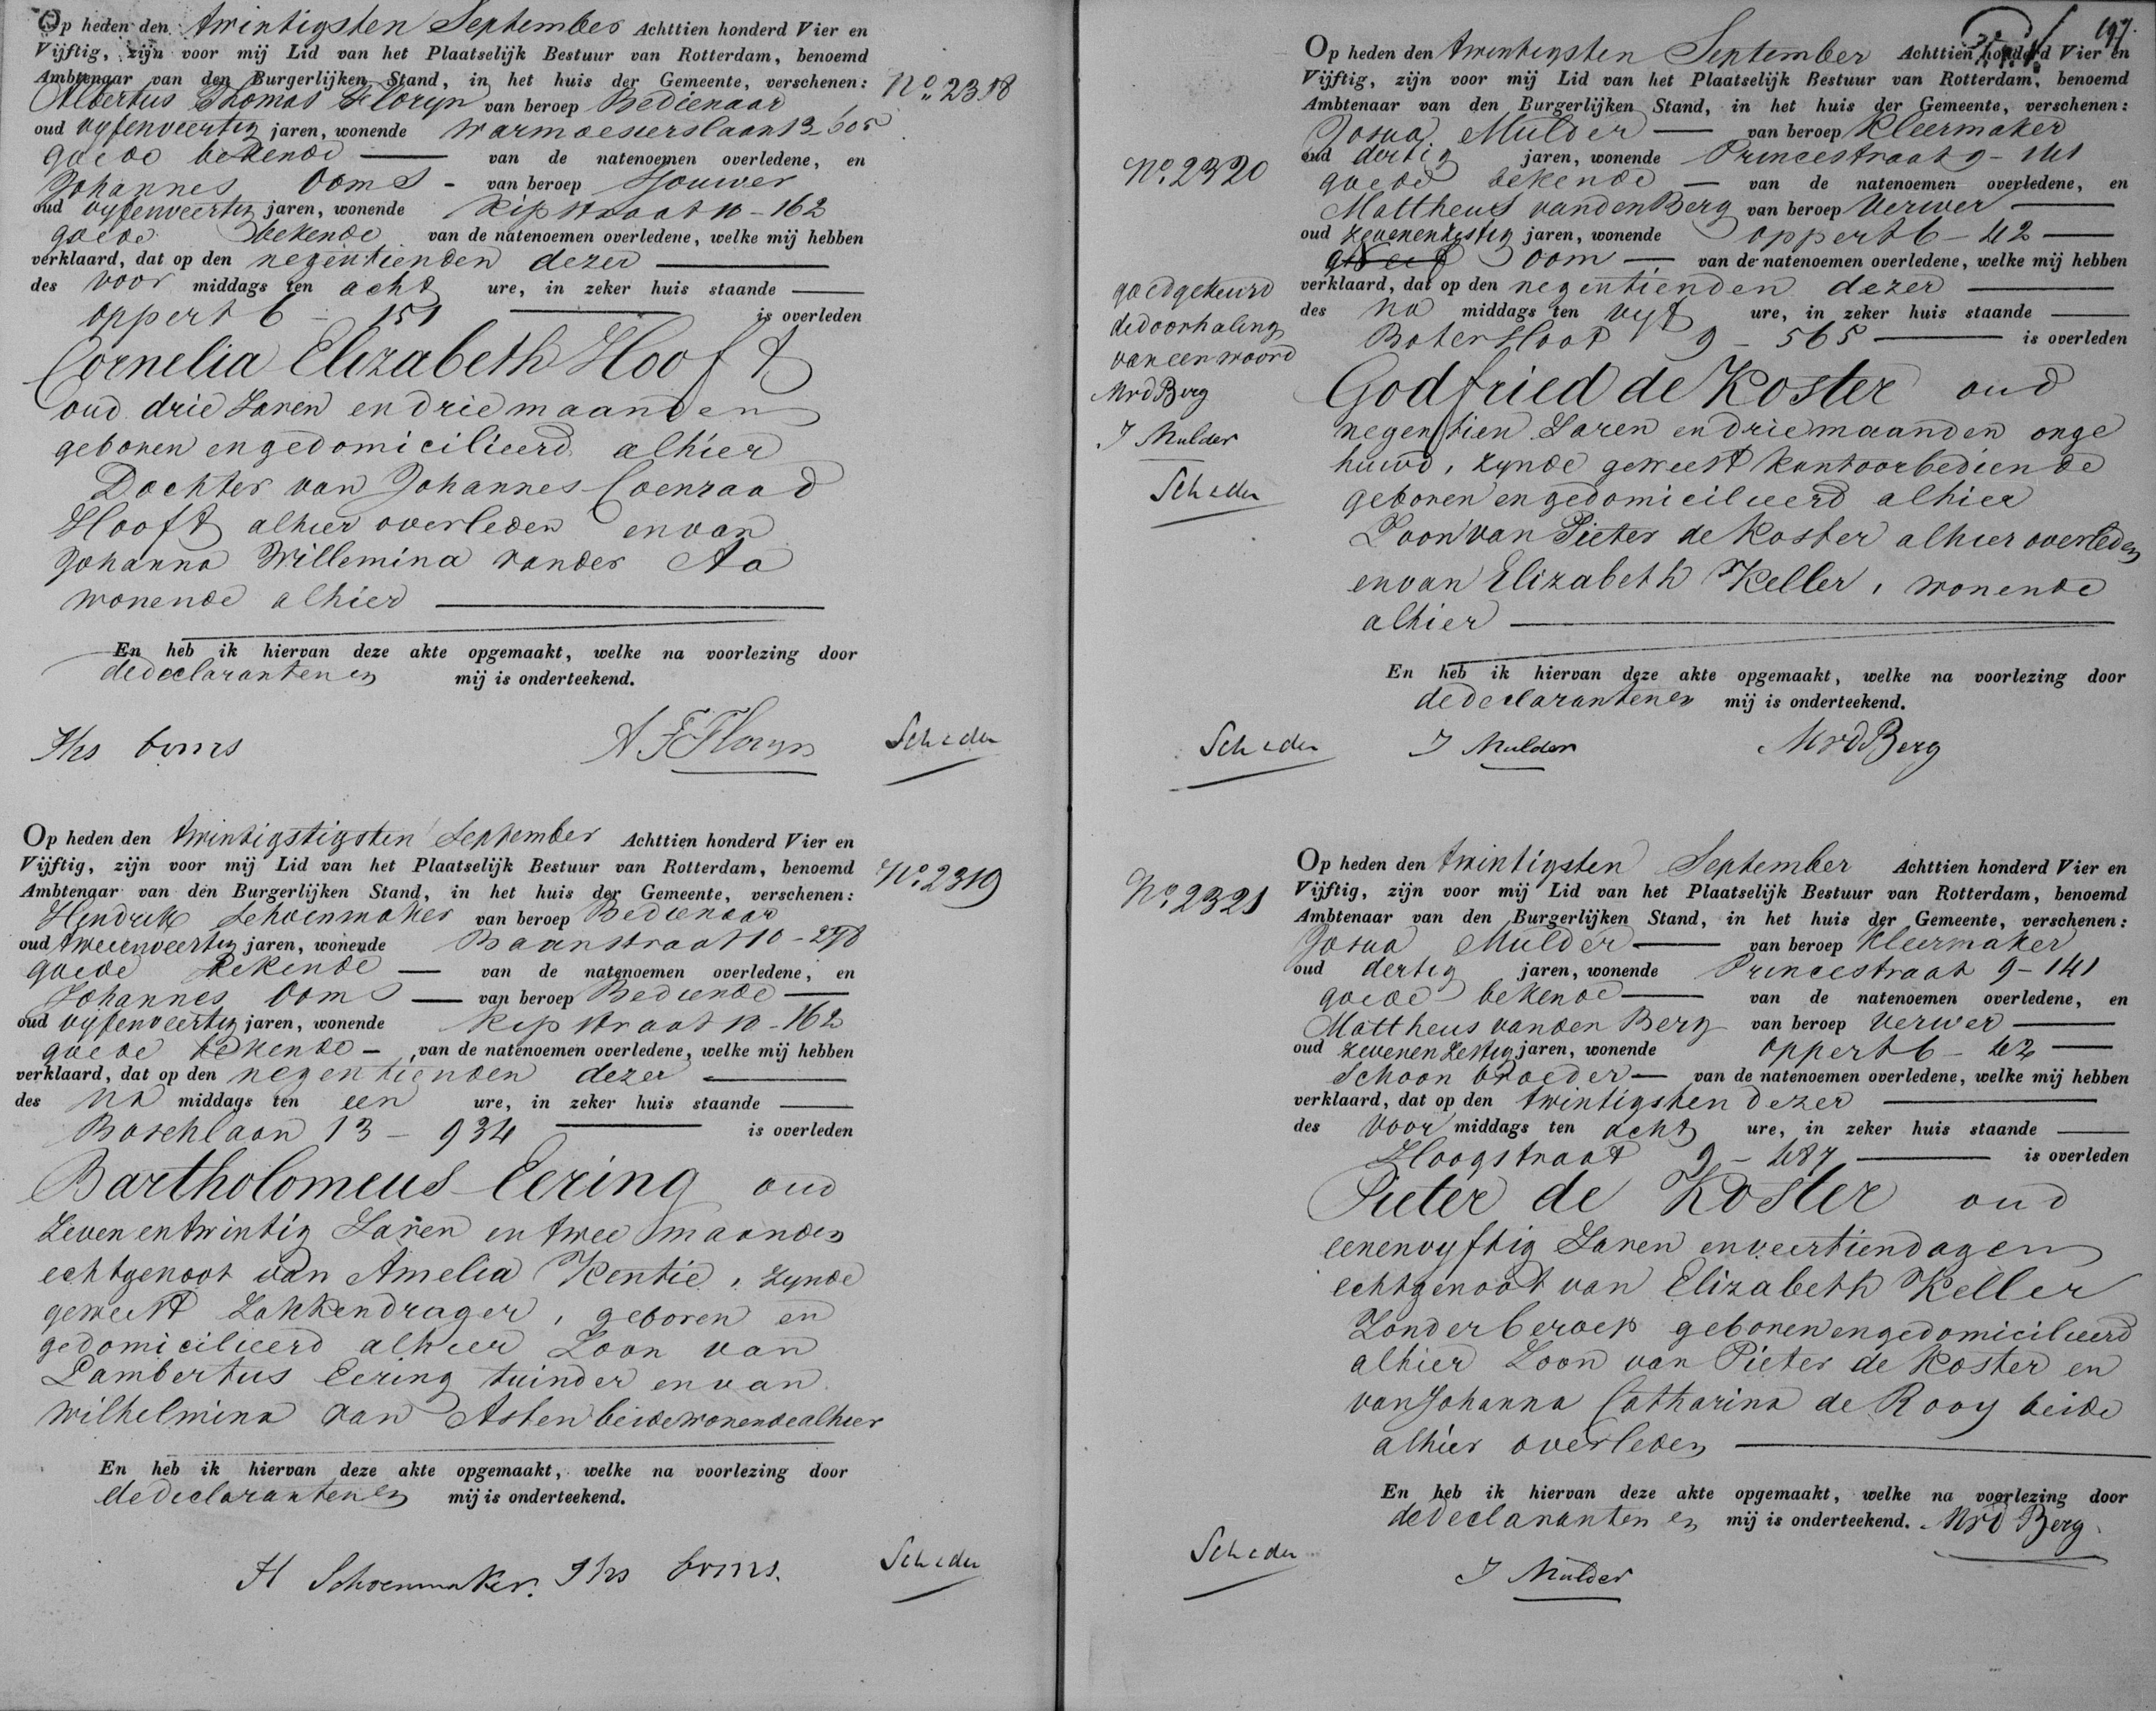 Op heden den twintigsten September Achttien honderd Vier en
Vijftig, zijn voor mij Lid van het Plaatselijk Bestuur van Rotterdam, benoemd
Ambtenaar van den Burgerlijken Stand, in het huis der Gemeente, verschenen:
No. 2318
Albertus Thomas Floryn van beroep Bedienaar
oud vyfenveertig jaren, wonende Warmoesierslaan 13-605
goede bekende van de natenoemen overledene, en
Johannes Ooms - van beroep Sjouwer
oud vyfenveertig jaren, wonende Kipstraat 10-162
goede bekende van de natenoemen overledene, welke mij hebben
verklaard, dat op den negentienden dezer
des voor middags ten acht ure, in zeker huis staande
Oppert 6 - 151 is overleden
Cornelia Elizabeth Hooft
oud drie Jaren en drie maanden
geboren en gedomicilieerd alhier
Dochter van Johannes Coenraad
Hooft alhier overleden en van
Johanna Willemina van der Aa
wonende alhier
En heb ik hiervan deze akte opgemaakt, welke na voorlezing door
de declaranten en mij is onderteekend.
Jhs Ooms A F Floryn Scheder
Op heden den twintigstigsten September Achttien honderd Vier en
Vijftig, zijn voor mij Lid van het Plaatselijk Bestuur van Rotterdam, benoemd
Ambtenaar van den Burgerlijken Stand, in het huis der Gemeente, verschenen:
No. 2319
Hendrik Schoenmaker van beroep Bedienaar
oud tweeenveertig jaren, wonende Baanstraat 10-278
goede bekende van de natenoemen overledene, en
Johannes Ooms van beroep Bediende
oud vyfenveertig jaren, wonende Kipstraat 10-162
goede bekende - van de natenoemen overledene, welke mij hebben
verklaard, dat op den negentienden dezer
des na middags ten een ure, in zeker huis staande
Boschlaan 13 - 934 is overleden
Bartholomeus Eering oud
Zeven en twintig Jaren en twee maanden
echtgenoot van Amelia Kentie, zynde
geweest Zakkendrager, geboren en
gedomicilieerd alhier Zoon van
Lambertus Eering tuinder en van
Wilhelmina van Asten beide wonende alhier
En heb ik hiervan deze akte opgemaakt, welke na voorlezing door
de declaranten en mij is onderteekend.
H Schoenmaker. Jhs Ooms. Scheder
197.
Op heden den twintigsten September Achttien honderd Vier en
Vijftig, zijn voor mij Lid van het Plaatselijk Bestuur van Rotterdam, benoemd
Ambtenaar van den Burgerlijken Stand, in het huis der Gemeente, verschenen:
No. 2320
Josua Mulder van beroep Kleermaker
oud dertig jaren, wonende Princestraat 9-141
goede bekende van de natenoemen overledene, en
Mattheus van den Berg van beroep Verwer
oud zevenenzestig jaren, wonende Oppert 6-42
Oom van de natenoemen overledene, welke mij hebben
verklaard, dat op den negentienden dezer
des na middags ten vyf ure, in zeker huis staande
Botersloot 9 - 565 is overleden
goedgekeurd
de doorhaling
van een woord
MvdBerg
J Mulder
Scheder
Godfried de Koster oud
negentien Jaren en drie maanden onge
huwd, zynde geweest kantoorbediende
geboren en gedomicilieerd alhier
Zoon van Pieter de Koster alhier overleden
en van Elizabeth Keller, wonende
alhier
En heb ik hiervan deze akte opgemaakt, welke na voorlezing door
de declaranten en mij is onderteekend.
Scheder J Mulder MvdBerg
Op heden den twintigsten September Achttien honderd Vier en
Vijftig, zijn voor mij Lid van het Plaatselijk Bestuur van Rotterdam, benoemd
Ambtenaar van den Burgerlijken Stand, in het huis der Gemeente, verschenen:
No. 2321
Josua Mulder van beroep Kleermaker
oud dertig jaren, wonende Princestraat 9-141
goede bekende van de natenoemen overledene, en
Mattheus van den Berg van beroep Verwer
oud zevenenzestig jaren, wonende Oppert 6-42
Schoon broeder van de natenoemen overledene, welke mij hebben
verklaard, dat op den twintigsten dezer
des voor middags ten acht ure, in zeker huis staande
Hoogstraat 9 - 487 is overleden
Pieter de Koster oud
eenenvyftig Jaren en veertien dagen
echtgenoot van Elizabeth Keller
Zonder beroep geboren en gedomicilieerd
alhier Zoon van Pieter de Koster en
van Johanna Catharina de Rooy beide
alhier overleden
En heb ik hiervan deze akte opgemaakt, welke na voorlezing door
de declaranten en mij is onderteekend. MvdBerg
Scheder J Mulder